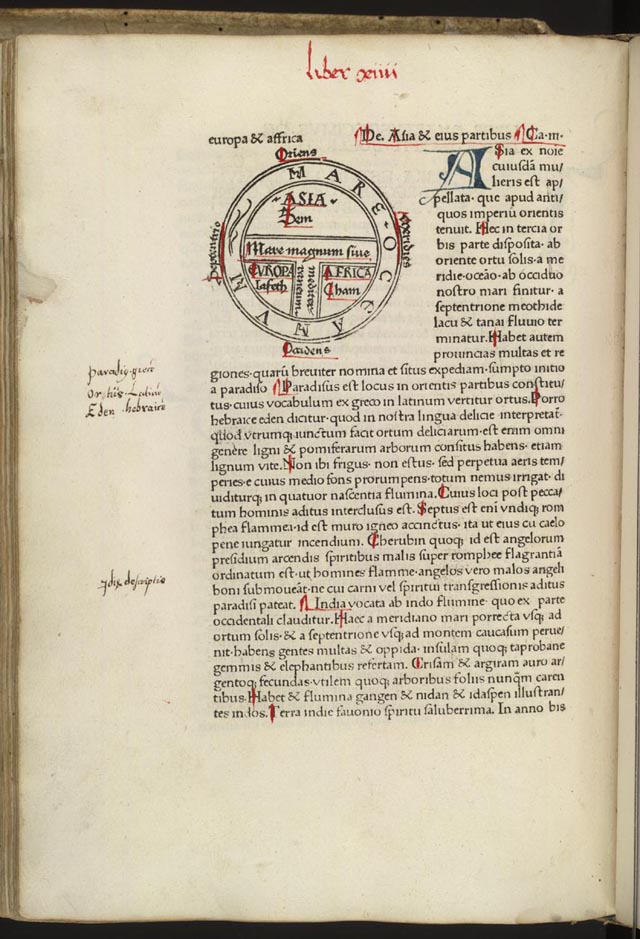 liber xiiii
europa & affrica
De. Asia & eius partibus Ca·iii·
Oriens
MARE OCEANUM
ASIA
Sem
Septentrio
Meridies
Mare magnum siue
mediterraneum
EUROPA
Iafeth
AFRICA
Cham
Occidens
ASia ex noīe
cuiusdā mu/
lieris est ap/
pellata· que apud anti/
quos imperiū orientis
tenuit. Hec in tercia or
bis parte disposita· ab
oriente ortu solis·a me
ridie·oceāo·ab occiduo
nostro mari finitur· a
septentrione meothide
lacu & tanai fluuio ter
minatur. Habet autem
prouincias multas et re
giones·quarū breuiter nomina et situs expediam·sumpto initio
a paradiso Paradisus est locus in orientis partibus constitu/
tus·cuius vocabulum ex greco in latinum vertitur ortus. Porro
hebraice eden dicitur·quod in nostra lingua delicie interpretat̄·
quod vtrumq; iunctum facit ortum deliciarum·est enim omni
genere ligni & pomiferarum arborum consitus habens· etiam
lignum vite. Non ibi frigus· non estus· sed perpetua aeris tem/
peries·e cuius medio fons prorumpens·totum nemus irrigat· di
uiditurq; in quatuor nascentia flumina. Cuius loci post pecca/
tum hominis aditus interclusus est. Septus est enī vndiq; rom
phea flammea·id est muro igneo accinctus· ita ut eius cu caelo
pene iungatur incendium. Cherubin quoq; id est angelorum
presidium arcendis spiritibus malis super romphee flagrantiā
ordinatum est·ut homines flamme·angelos vero malos angeli
boni submoueāt·ne cui carni vel spiritui transgressionis aditus
paradisi pateat. India vocata ab indo flumine· quo ex parte
occidentali clauditur. Haec a meridiano mari porrecta vsq; ad
ortum solis·& a septentrione vsq; ad montem caucasum perue/
nit·habens gentes multas & oppida· insulam quoq; taprobane
gemmis & elephantibus refertam. Crisam & argiram auro ar/
gentoq; fecundas·vtilem quoq; arboribus foliis nunq̄m caren
tibus. Habet & flumina gangen & nidan & idaspen illustran/
tes indos. Terra indie fauonio spiritu saluberrima. In anno bis
paradiſ· grece
ortus· Latine
Eden· hebraice
Indie descriptio